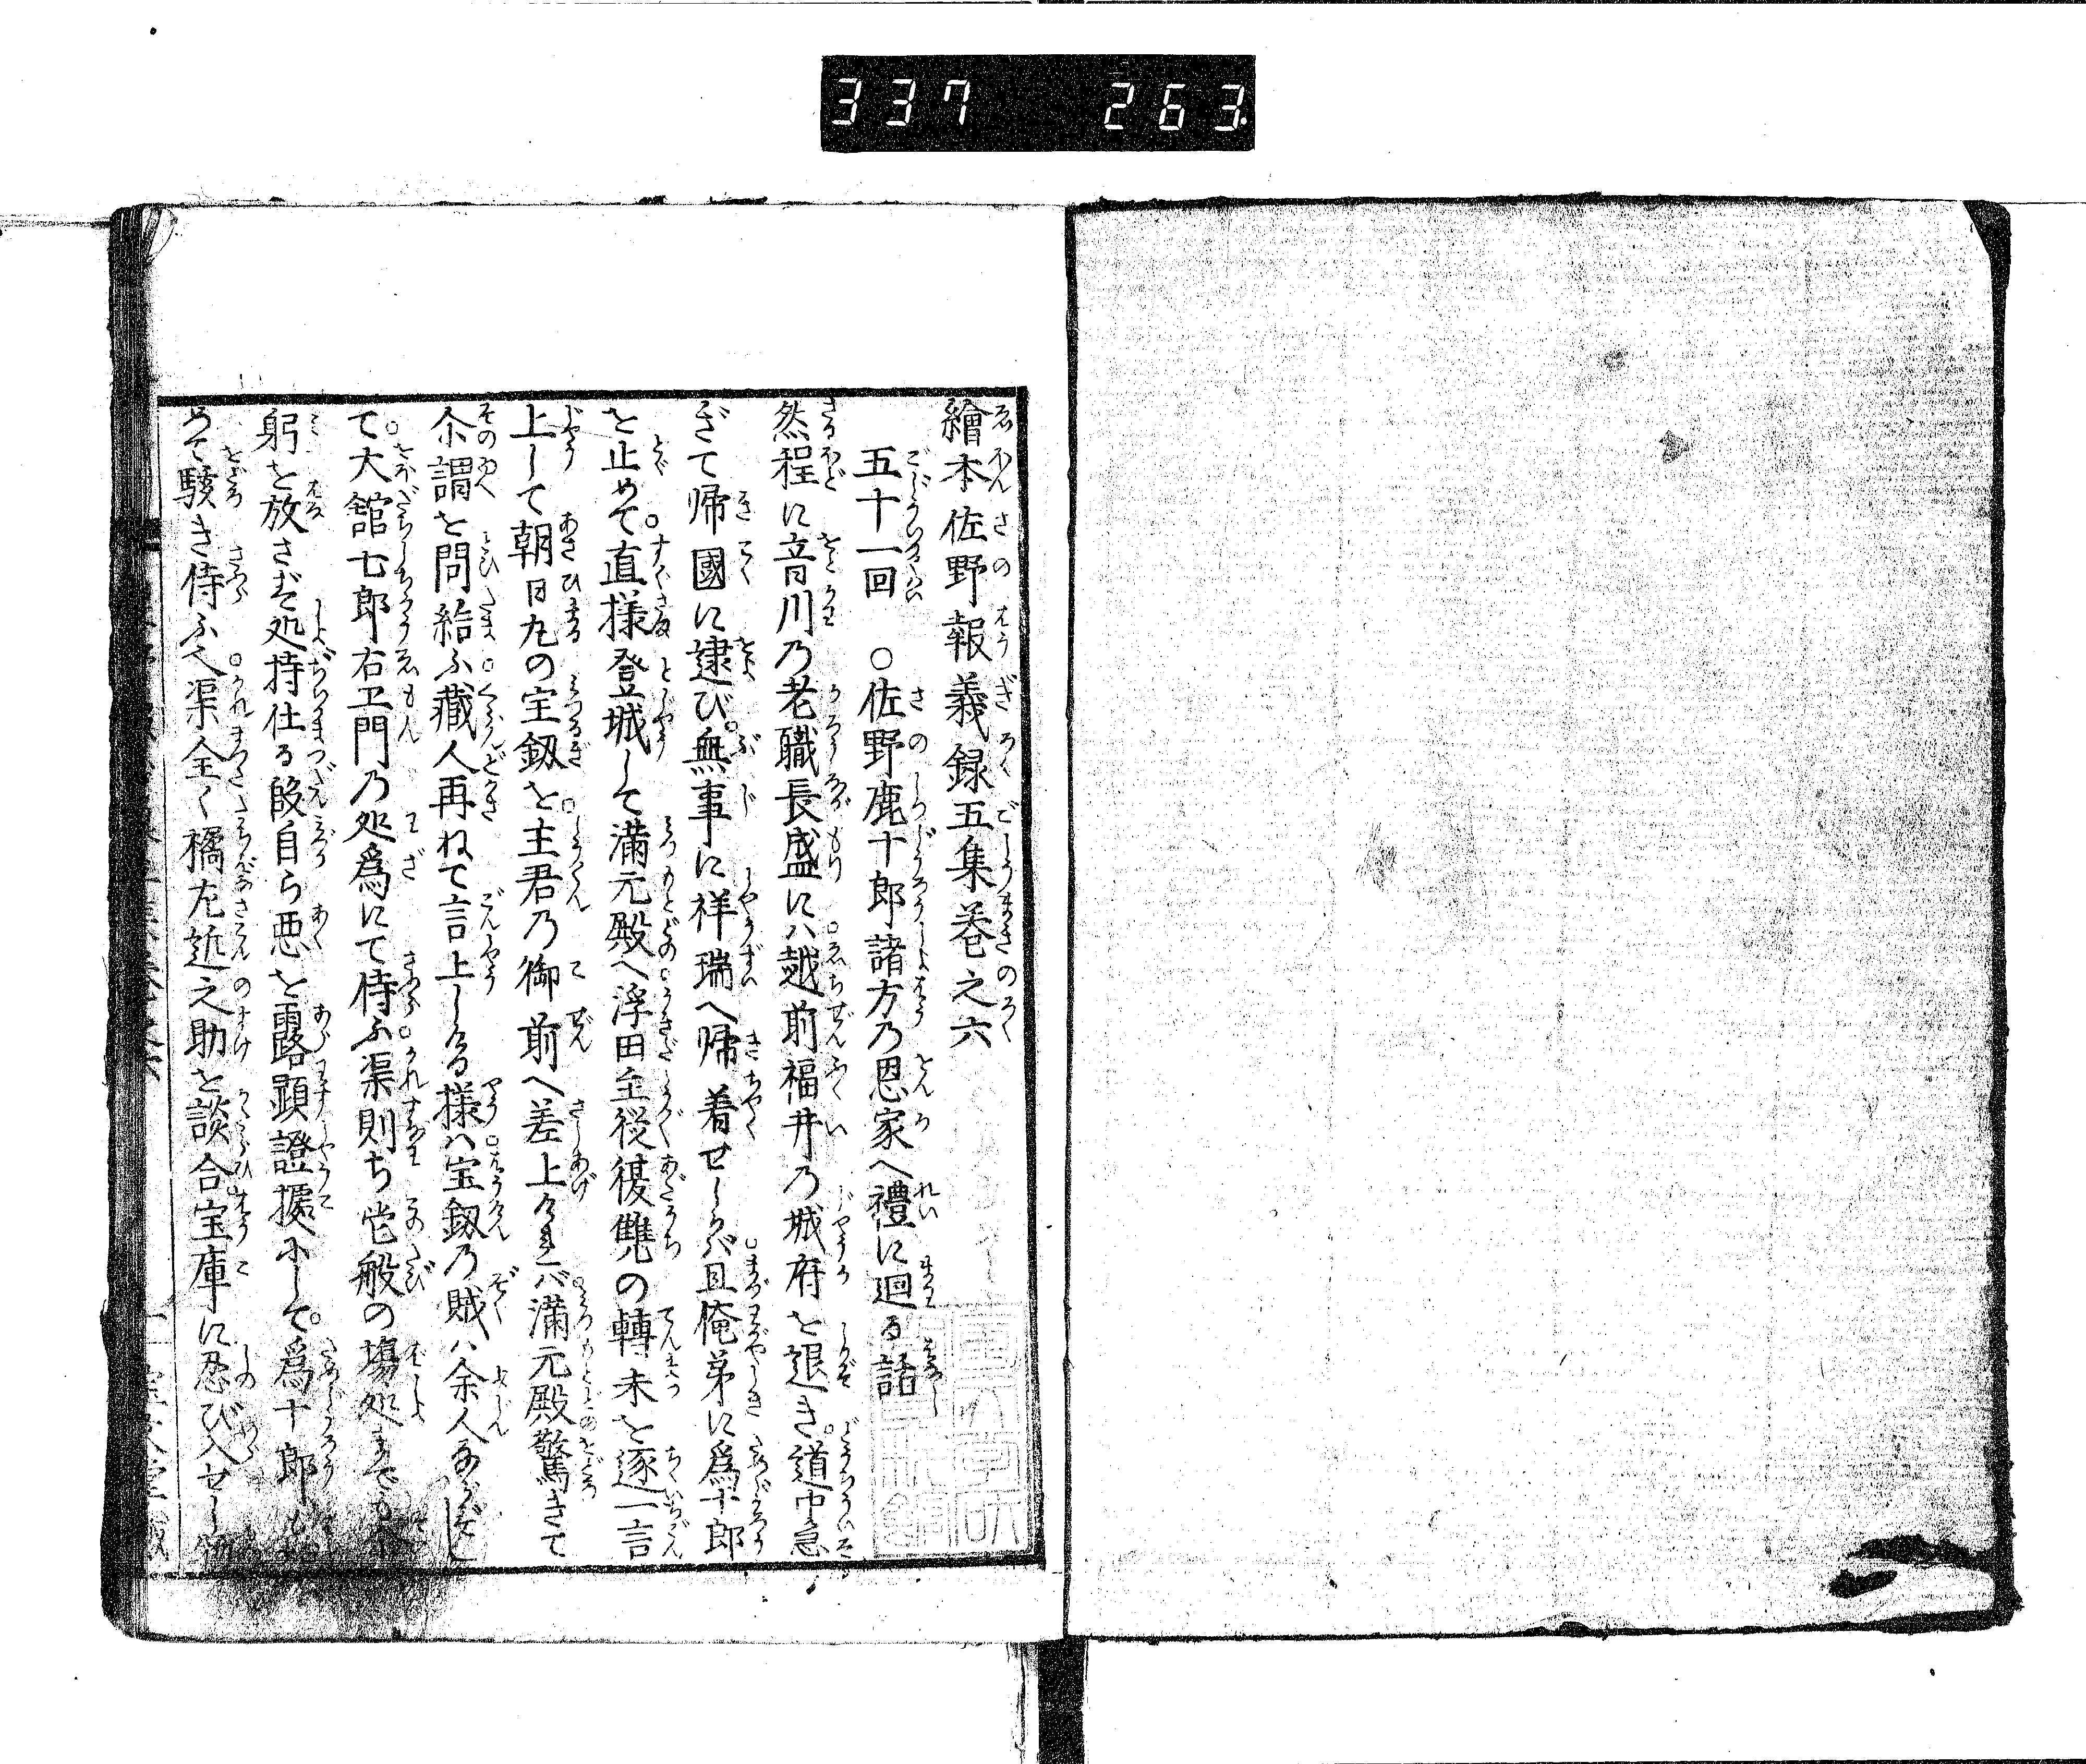 337 263
繪本佐野報義録五集巻之六
五十一回 ○佐野鹿十郎諸方乃恩家へ禮に廻る話
然程に音川乃老職長盛にハ越前福井乃城府を退き。道中急
ぎて帰國に逮び。無事に祥瑞へ帰着せしかバ且俺弟に爲十郎
を止めて。直様登城して満元殿へ浮田主従復讐の轉末を逐一言
上して朝日丸の宝釼を。主君乃御前へ差上けれバ満元殿驚きて
尒謂を問給ふ。藏人再ねて言上しける様ハ。宝釼乃賊ハ余人ならずし
て。大舘七郎右エ門乃処爲にて侍ふ。渠則ち這般の場処までも
躬を放さず処持仕る段自ら悪を露顕證據にして。爲十郎
めて駭き侍ふ。渠全く橘左近之助を談合宝庫に忍び入せし